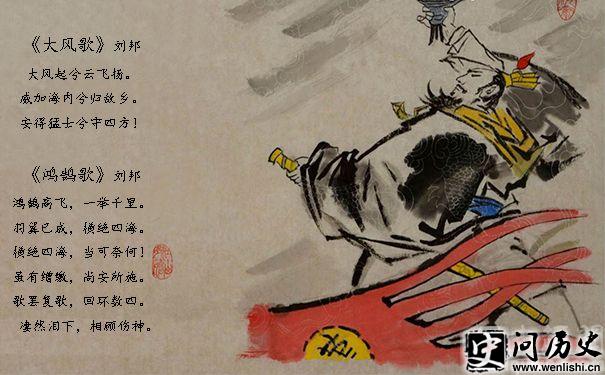 《大风歌》刘邦
大风起兮云飞扬。
威加海内兮归故乡。
安得猛士兮守四方！
《鸿鹄歌》刘邦
鸿鹄高飞，一举千里。
羽翼已成，横绝四海。
横绝四海，当可奈何！
虽有缯缴，尚安所施。
歌罢复歌，回环数四。
凄然泪下，相顾伤神。
史
问历史
www.wenlishi.cn